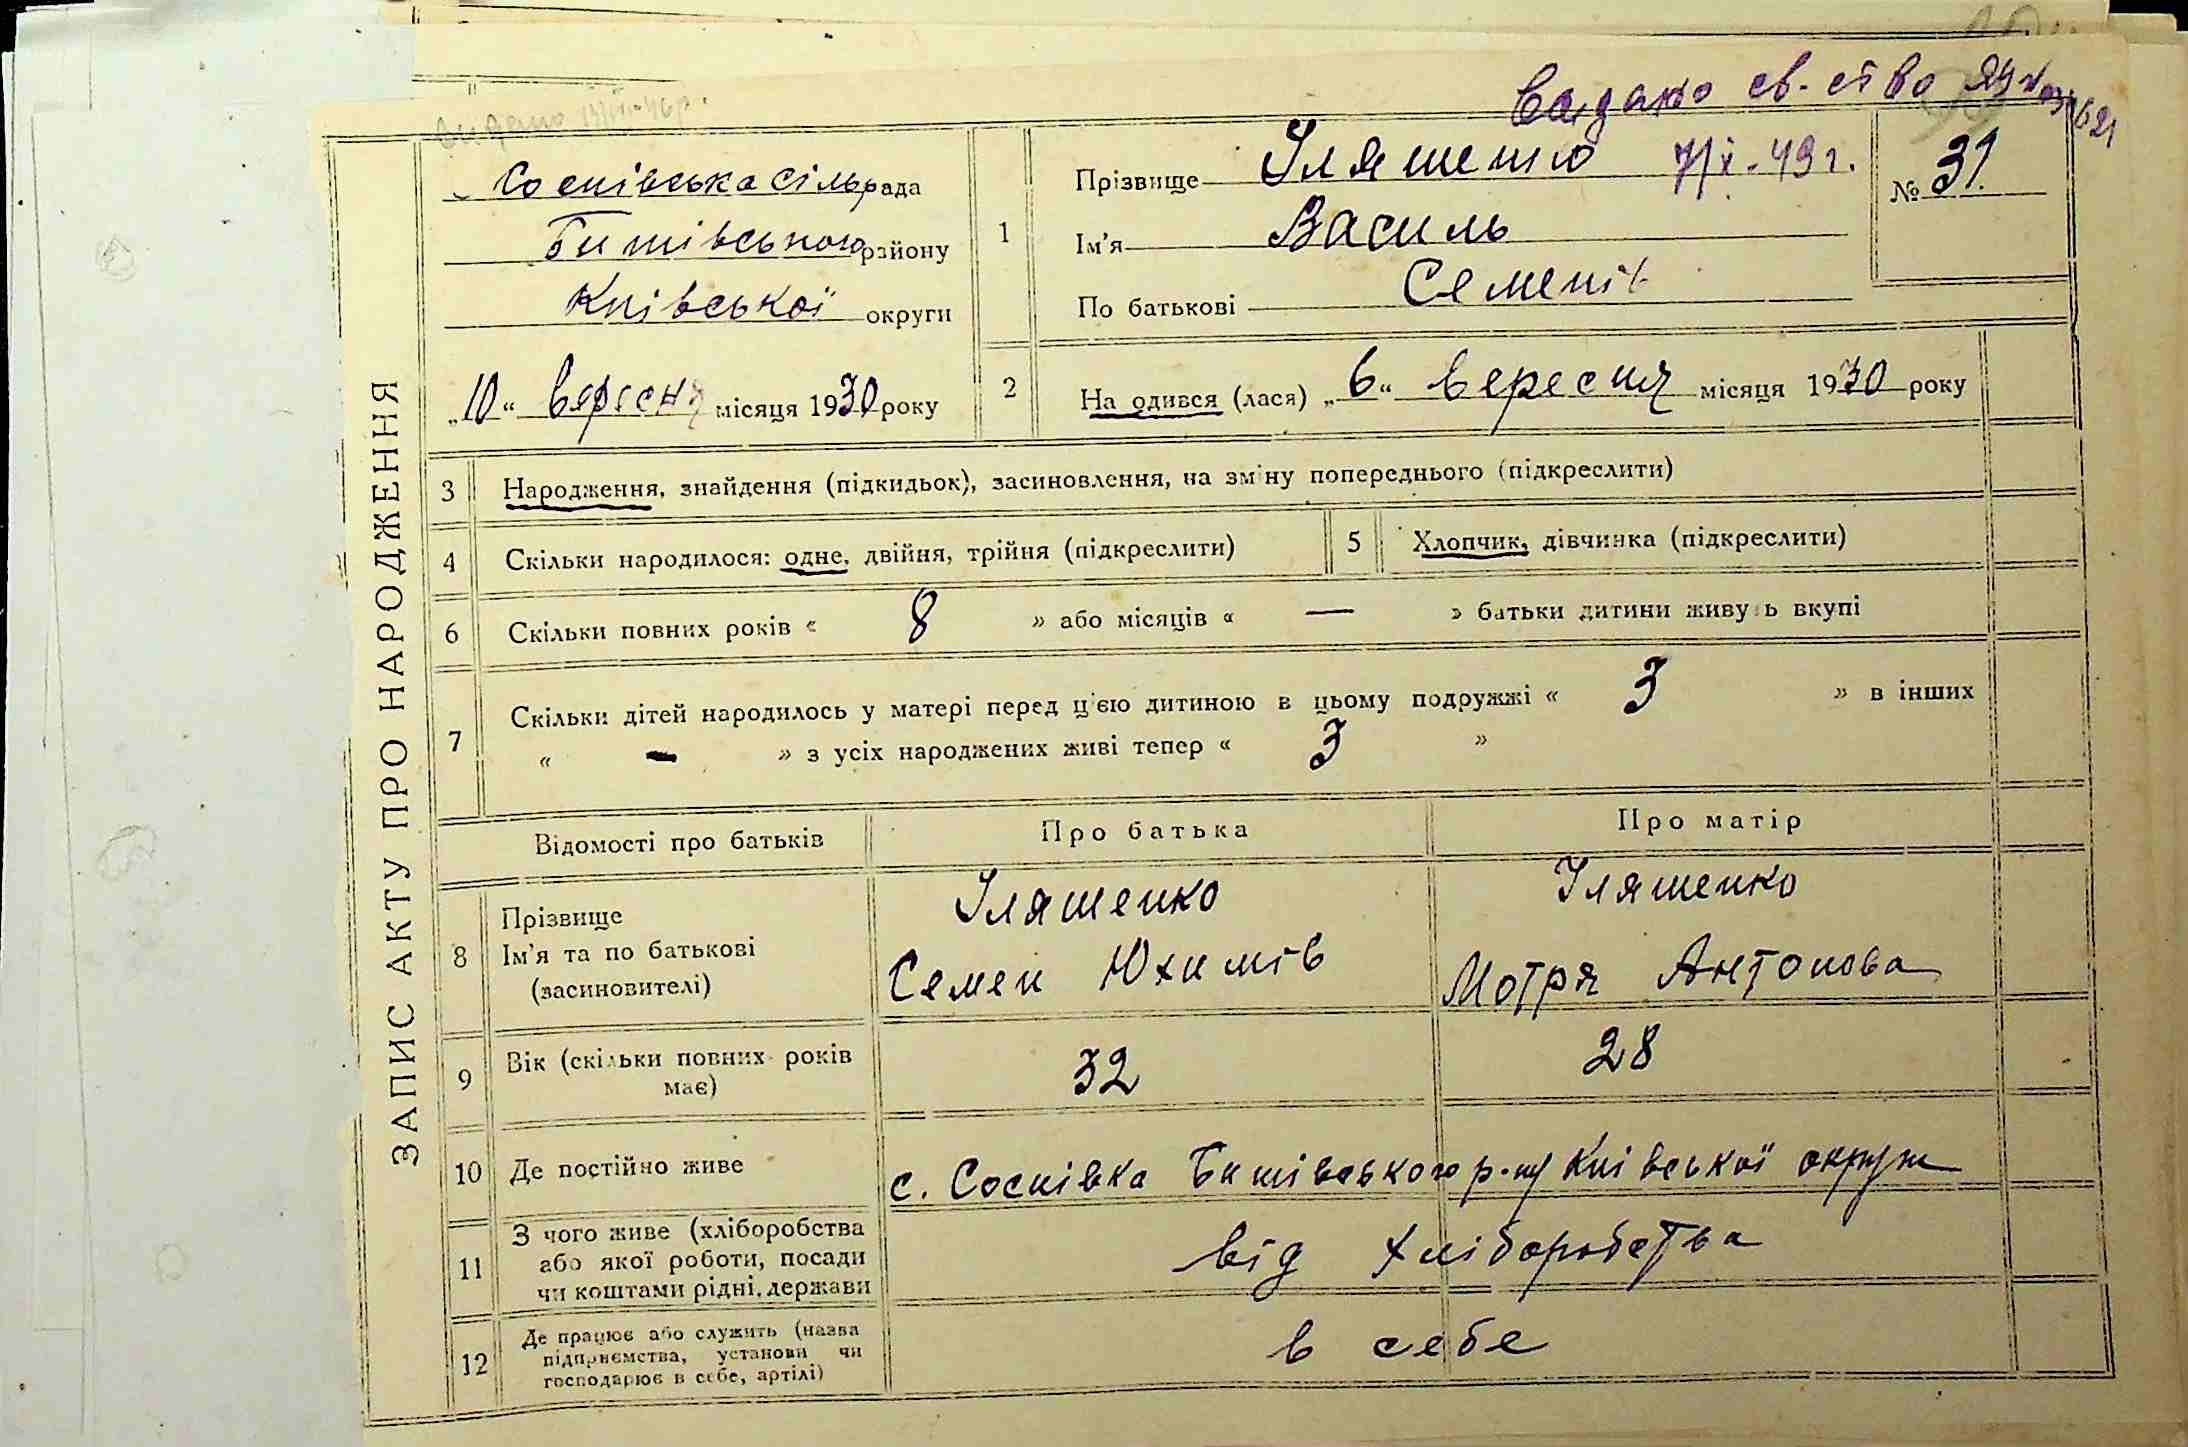 видано
Видано св-ство
7/X-49 г.
ЗАПИС АКТУ ПРО НАРОДЖЕННЯ
Соснівська сільрада
Бишівського району
Київської округи
„10“ вересня місяця 1930 року
1
Прізвище Іляшенко
Ім'я Василь
По батькові Семенів
№ 31.
2
На одився (лася) „6“ вересня місяця 1930 року
3 Народження, знайдення (підкидьок), засиновлення, на зміну попереднього (підкреслити)
4 Скільки народилося: одне, двійня, трійня (підкреслити)
5 Хлопчик, дівчинка (підкреслити)
6 Скільки повних років « 8 » або місяців « — » батьки дитини живуть вкупі
7 Скільки дітей народилось у матері перед ц'єю дитиною в цьому подружжі « 3 » в інших
« — » з усіх народжених живі тепер « 3 »
Відомості про батьків Про батька Про матір
8 Прізвище
Ім'я та по батькові
(засиновителі)
Іляшенко
Семен Юхимів
Іляшенко
Мотря Антонова
9 Вік (скільки повних років
має)
32
28
10 Де постійно живе
с. Соснівка Бишівського р-ну Київської округи
11 З чого живе (хліборобства
або якої роботи, посади
чи коштами рідні, держави
від хліборобства
12 Де працює або служить (назва
підприємства, установи чи
господарює в себе, артілі)
в себе